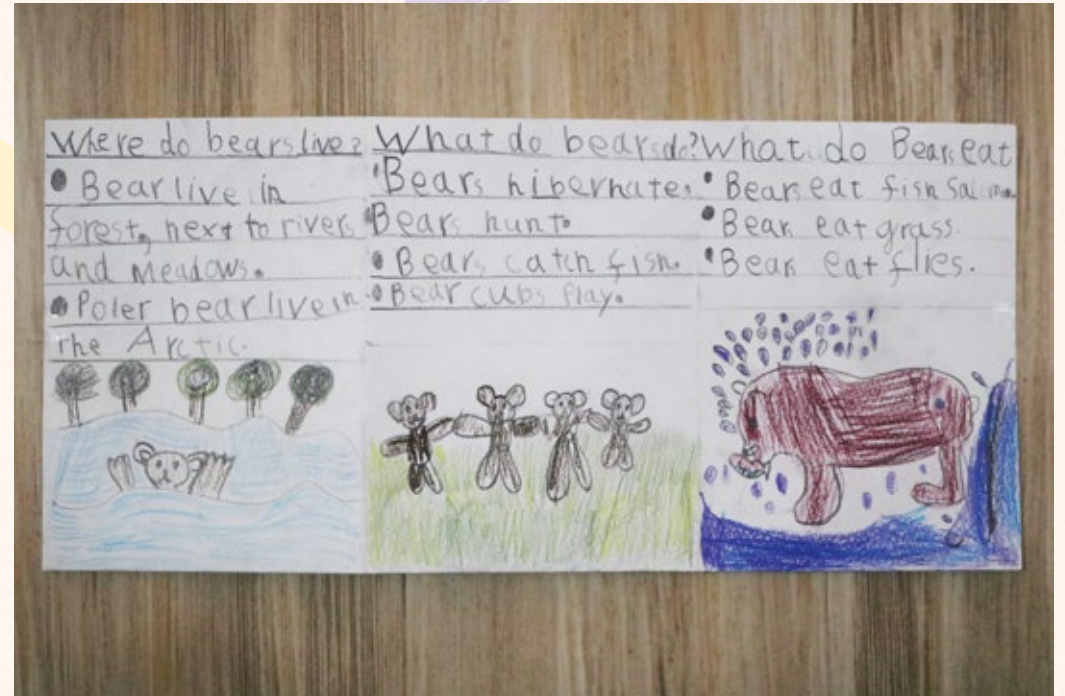 Where do bears live?
• Bear live in
forest, next to rivers
and meadows.
• Poler bear live in
the Arctic.
What do bears do?
• Bears hibernate.
• Bears hunt.
• Bears catch fish.
• Bear cubs play.
What do Bears eat
• Bears eat fish
• Bear eat grass.
• Bears eat flies.